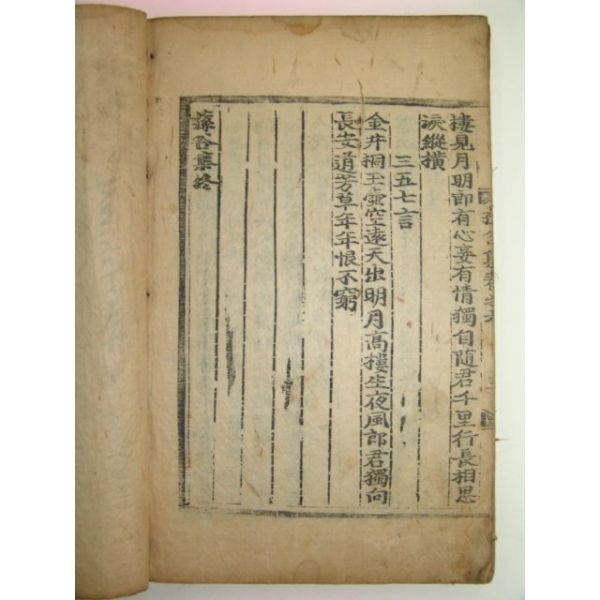 捿見月明郎有心妾有情獨自隨君千里行長相思
淚縱橫
三五七言
金井桐玉壺空遠天出明月高樓生夜風郎君獨向
長安道芳草年年恨不窮
蓀谷集終
蓀谷集卷之六